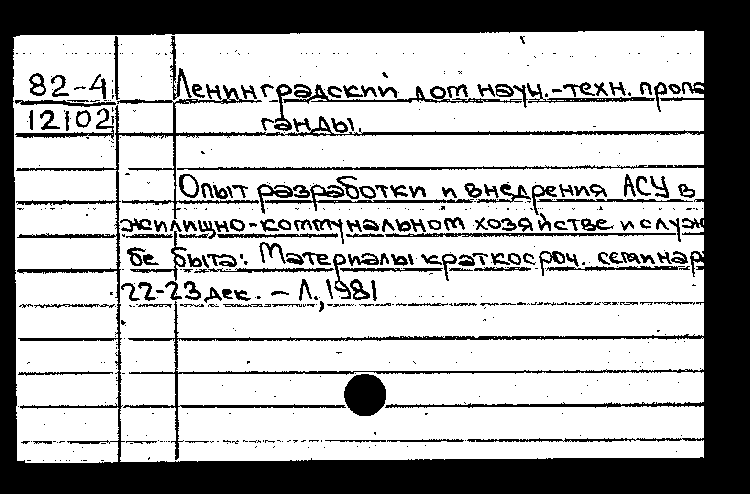 82-4 Ленинградский дом науч.-техн. пропа
12102 ганды.
Опыт разработки и внедрения АСУ в
жилищно-коммунальном хозяйстве и служ
бе быта: Материалы краткосроч. семинар
22-23 дек. - Л., 1981